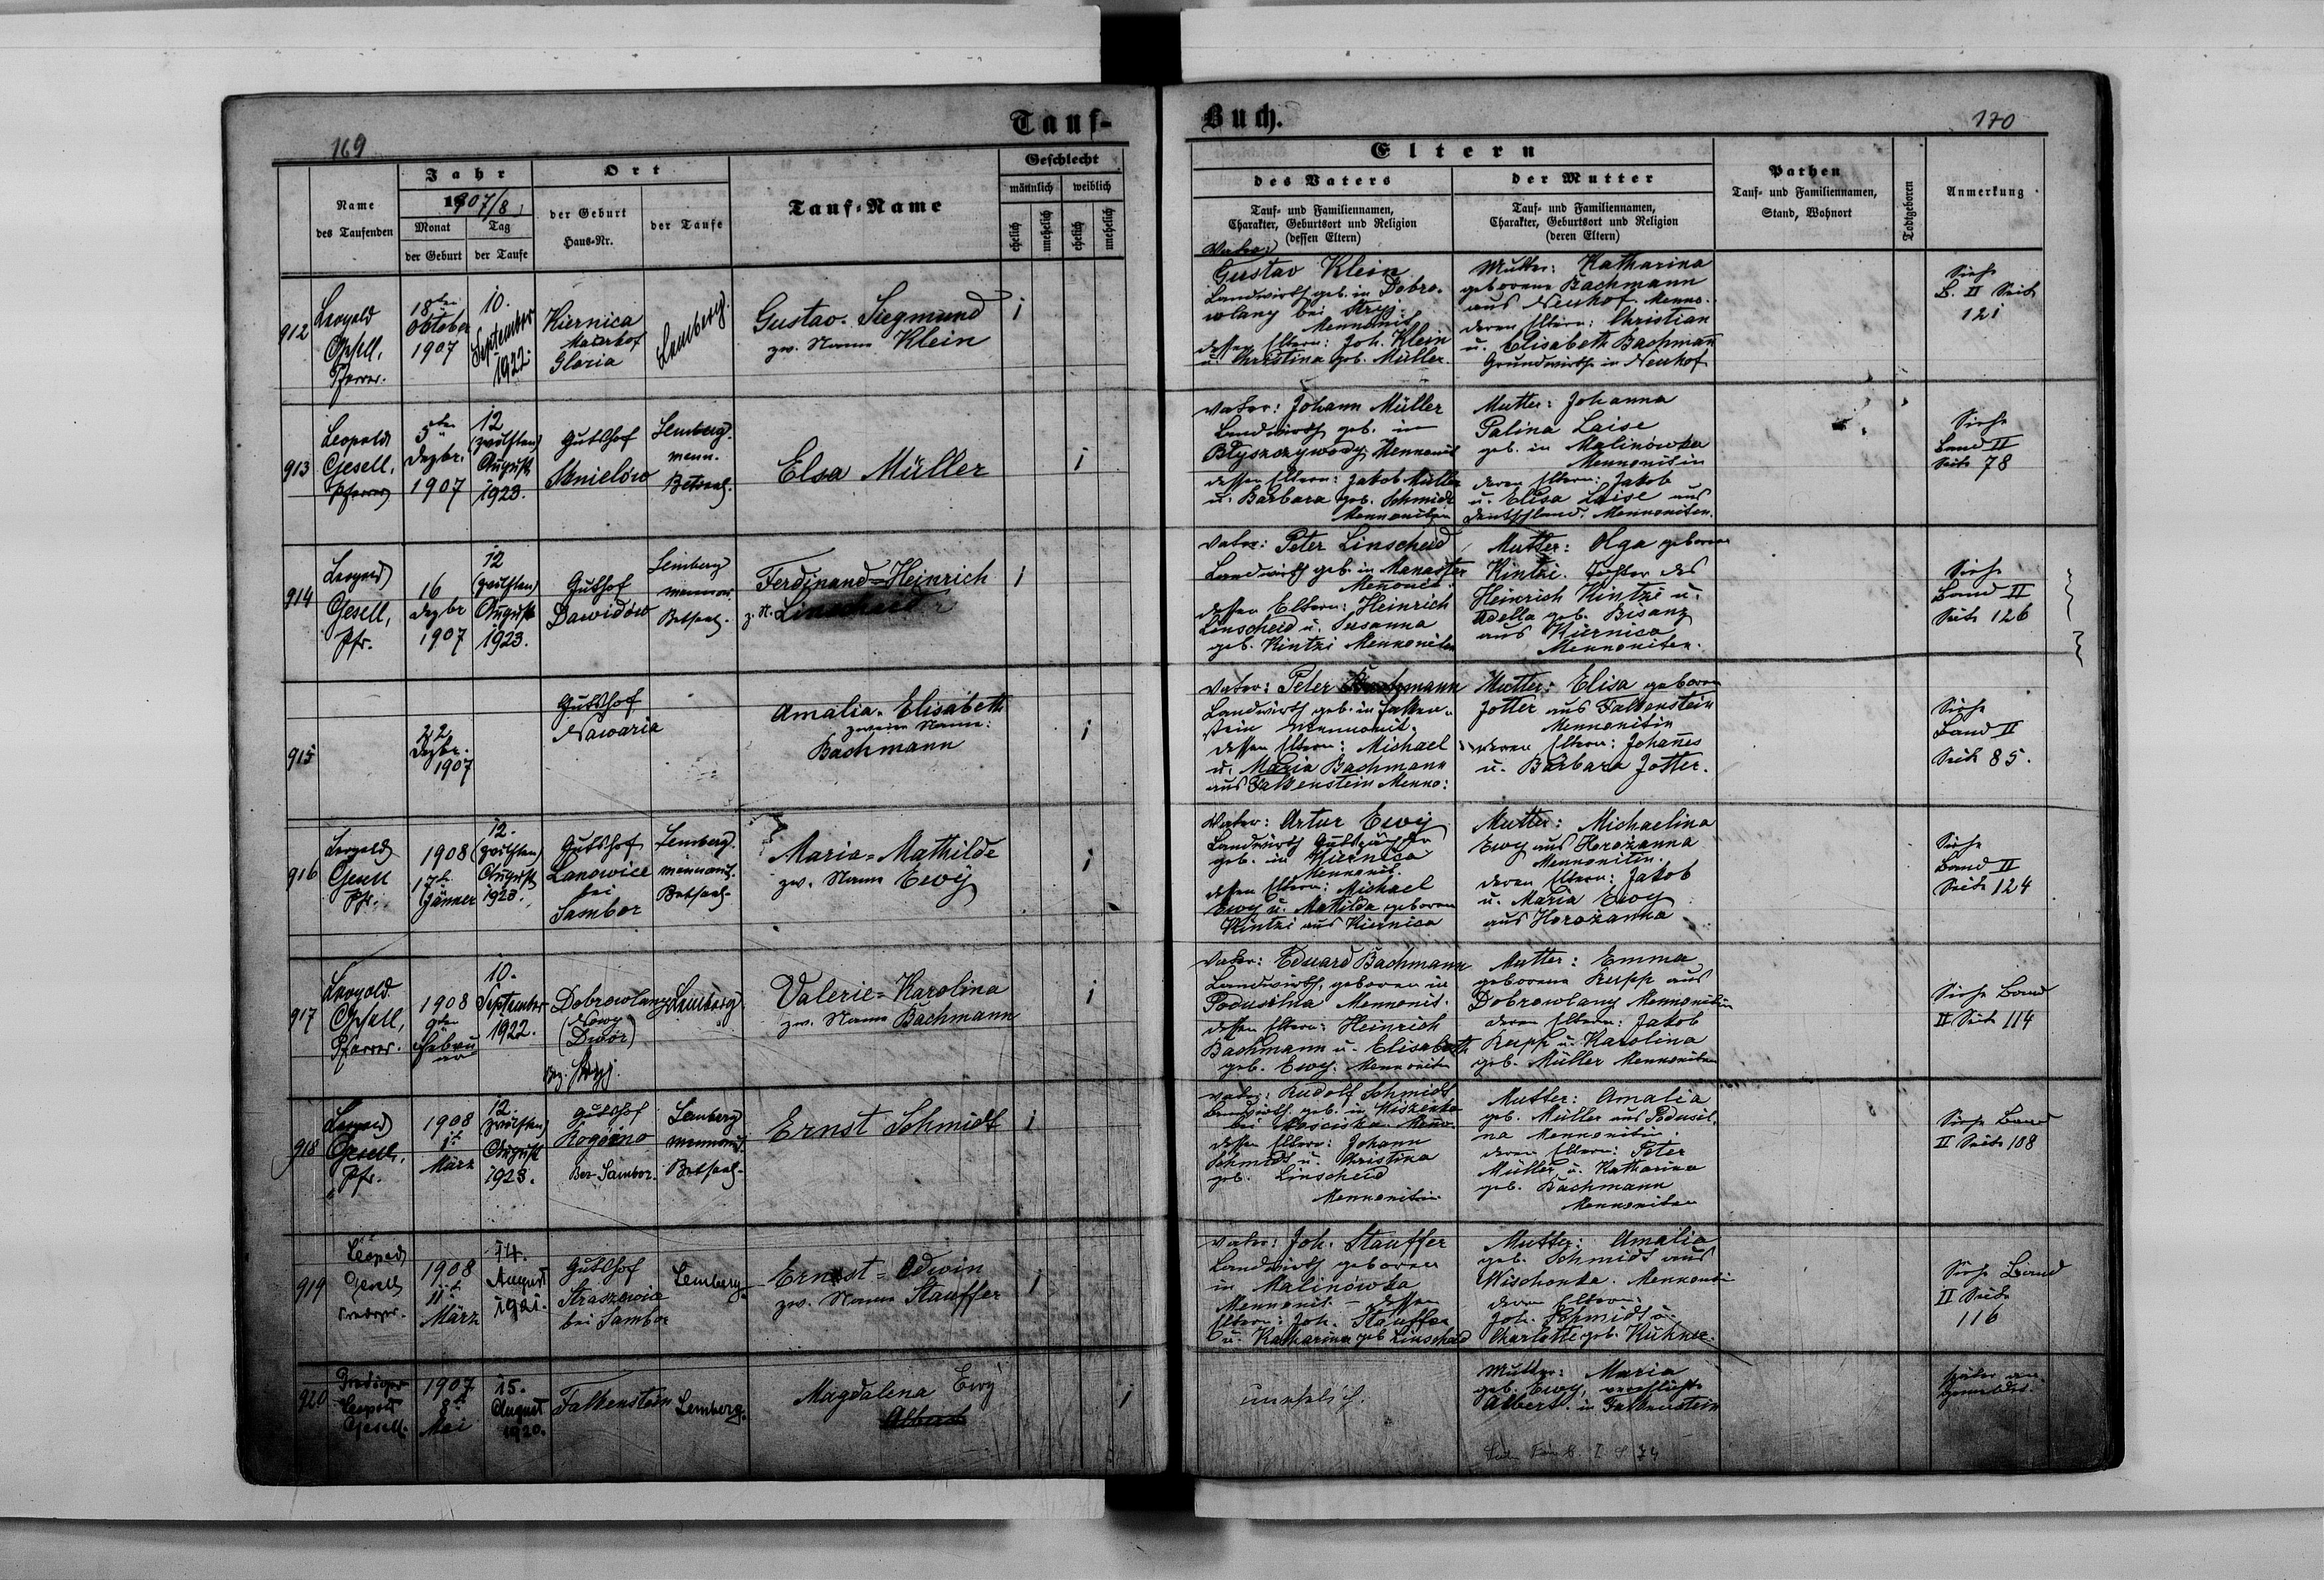 Tauf-
Buch.
169
170
Name
des Taufenden
Jahr
1907/8
Monat
Tag
der Geburt
der Taufe
Ort
der Geburt
Haus-Nr.
der Taufe
Tauf-Name
Geschlecht
männlich
weiblich
ehelich
unehelich
ehelich
unehelich
Eltern
des Vaters
Tauf- und Familiennamen,
Charakter, Geburtsort und Religion
(dessen Eltern)
der Mutter
Tauf- und Familiennamen,
Charakter, Geburtsort und Religion
(deren Eltern)
Pathen
Tauf- und Familiennamen,
Stand, Wohnort
Todtgeboren
Anmerkung
912
Leopold
Gesell,
Pfarrer.
18ten
Oktober
1907
10.
September
1922.
Kiernica
Maierhof
Gloria
Lemberg.
Gustav-Siegmund
zw. Name Klein
1
Vater:
Gustav Klein
Landwirth geb. in Dobro-
wlany bei Stryj.
Mennonit
dessen Eltern: Joh. Klein
u. Christina geb. Müller.
Mutter: Katharina
geborene Bachmann
aus Neuhof. Menno.
deren Eltern: Christian
u. Elisabeth Bachmann
Grundwirthe in Neuhof
Siehe
B. II Seite
121
913
Leopold
Gesell,
Pfarrer
5ten
Dezbr.
1907
12
(zwölften)
August
1923.
Gutshof
Mnielów
Lemberg.
menn.
Betsaal.
Elsa Müller
1
Vater: Johann Müller
Landwirth geb. in
Blyszczywody Mennonit
dessen Eltern: Jakob Müller
u. Barbara geb. Schmidt
Mennoniten
Mutter: Johanna
Palina Laise
geb. in Malinowka
Mennonitin
deren Eltern: Jakob
u. Elisa Laise aus
Deutschland. Mennoniten.
Siehe
Band II
Seite 78
914
Leopold
Gesell,
Pfr.
16
Dezbr
1907
12
(zwölften)
August
1923.
Gutshof
Dawidów
Lemberg
mennon.
Betsaal.
Ferdinand=Heinrich
z. N. Linscheid
1
Vater: Peter Linscheid
Landwirth geb. in Manaster
Mennonit.
dessen Eltern: Heinrich
Linscheid u. Susanna
geb. Kintzi Mennoniten
Mutter: Olga geborene
Kintzi. Tochter des
Heinrich Kintzi u.
Adella geb. Bisanz
aus Kiernica
Mennoniten.
Siehe
Band II
Seite 126
915
22
Dezbr.
1907
Gutshof
Nawaria
Amalia-Elisabeth
zweiter Name:
Bachmann
1
Vater: Peter Bachmann
Landwirth geb. in Falken-
stein Mennonit.
dessen Eltern: Michael
u. Maria Bachmann
aus Falkenstein Menno:
Mutter: Elisa geboren
Jotter aus Falkenstein
Mennonitin
deren Eltern: Johanes
u. Barbara Jotter.
Siehe
Band II
Seite 85.
916
Leopold
Gesell
Pfr.
1908
17t.
Jänner
12.
(zwölften)
August
1923.
Gutshof
Lanowice
bei
Sambor
Lemberg.
mennonit.
Betsaal.
Maria=Mathilde
zw. Name Ewy
1
Vater: Artur Ewy
Landwirth Gutspächter
geb. in Kiernica
Mennonit.
dessen Eltern: Michael
Ewy u. Mathilda geborene
Kintzi aus Kiernica
Mutter: Michaelina
Ewy aus Horozanna
Mennonitin.
deren Eltern: Jakob
u. Maria Ewy
aus Horożanna
Siehe
Band II
Seite 124
917
Leopold
Gesell,
Pfarrer.
1908
9ten
Februar
10.
September
1922.
Dobrowlany
Nowy
(Dwór)
Bez. Stryj.
Lemberg.
Valerie=Karolina
zw. Name Bachmann
1
Vater: Eduard Bachmann
Landwirth, geboren in
Podusilna Mennonit.
dessen Eltern: Heinrich
Bachmann u. Elisabeth
geb. Ewy. Mennoniten
Mutter: Emma
geborene Rupp aus
Dobrowlany Mennonitin
deren Eltern: Jakob
Rupp u. Karolina
geb. Müller Mennoniten
Siehe Band
II Seite 114
918
Leopold
Gesell,
Pfr.
1908
1t
März
12.
(zwölften)
August
1923.
Gutshof
Rogózno
Bez-Sambor.
Lemberg
mennonit.
Betsaal.
Ernst Schmidt
1
Vater: Rudolf Schmidt
Landwirth geb. in Wiszenka
bei Mosciska Menno.
dessen Eltern: Johann
Schmidt u. Christina
geb. Linscheid
Mennoniten
Mutter: Amalia
geb. Müller aus Podusil-
na Mennonitin.
deren Eltern: Peter
Müller u. Katharina
geb. Bachmann
Mennoniten
Siehe Band
II Seite 108
919
Leopold
Gesell
Prediger.
1908
11t
März
14.
August
1921.
Gutshof
Straszewice
bei Sambor
Lemberg.
Ernst=Edwin
zw. Name Stauffer
1
Vater: Joh. Stauffer
Landwirth geboren
in Malinówka
Mennonit - dessen
Eltern: Joh. Stauffer
u. Katharina geb Linscheid
Mutter: Amalia
geb. Schmidt aus
Wischenka. Mennonitin
deren Eltern:
Joh. Schmidt u.
Charlotte geb. Kühner.
Siehe Band
II Seite
116
920
Prediger
Leopold
Gesell.
1907
8t
Mai
15.
August
1920.
Falkenstein
Lemberg.
Magdalena Ewy
Albert
1
unehelich.
Mutter: Maria
geb. Ewy, verehlichte
Albert. in Falkenstein
später an-
gemeldet.